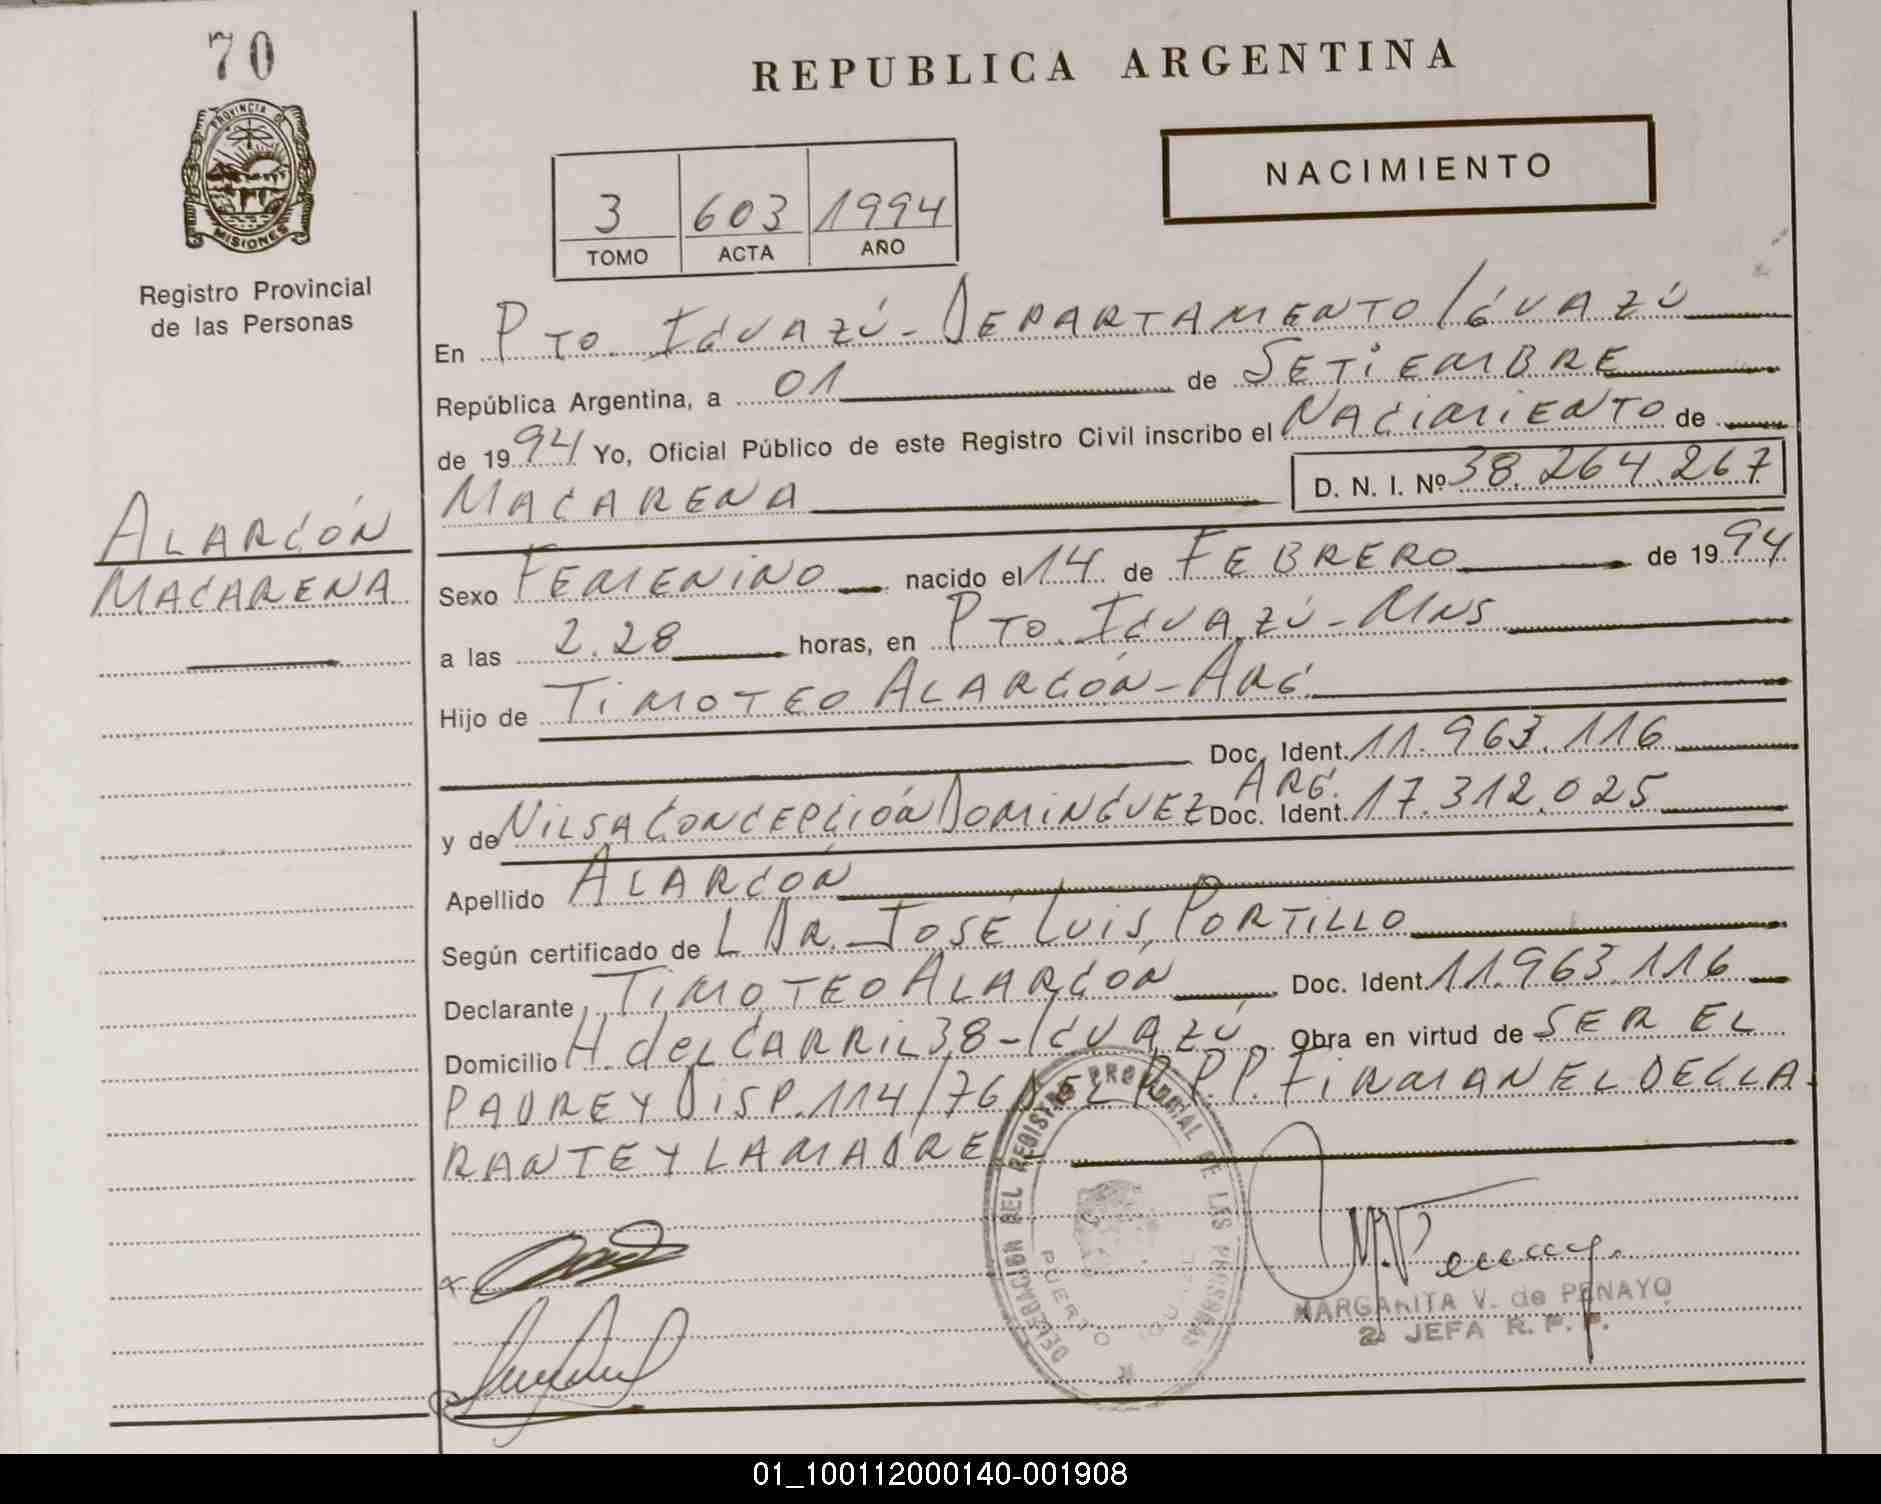 70
REPUBLICA ARGENTINA
PROVINCIA DE
MISIONES
NACIMIENTO
3 603 1994
TOMO ACTA AÑO
Registro Provincial
de las Personas
En PTO. IGUAZÚ - DEPARTAMENTO IGUAZÚ
República Argentina, a 01 de SETIEMBRE
de 1994 Yo, Oficial Público de este Registro Civil inscribo el NACIMIENTO de
MACARENA D. N. I. Nº 38.264.267
ALARCÓN
MACARENA
Sexo FEMENINO nacido el 14 de FEBRERO de 1994
a las 2.28 horas, en PTO. IGUAZÚ - MNS
Hijo de TIMOTEO ALARCÓN - ARG.
Doc. Ident. 11.963.116
y de NILSA CONCEPCIÓN DOMINGUEZ ARG. Doc. Ident. 17.312.025
Apellido ALARCÓN
Según certificado de L DR. JOSÉ LUIS PORTILLO
Declarante TIMOTEO ALARCÓN Doc. Ident. 11.963.116
Domicilio H. del CARRIL 38 - IGUAZÚ Obra en virtud de SER EL
PADRE Y DISP. 114/76 DEL R.P.P. FIRMAN EL DECLA-
RANTE Y LA MADRE
DELEGACION DEL REGISTRO PROVINCIAL DE LAS PERSONAS
PUERTO IGUAZU
MARGARITA V. de PENAYO
2. JEFA R. P. P.
01_100112000140-001908